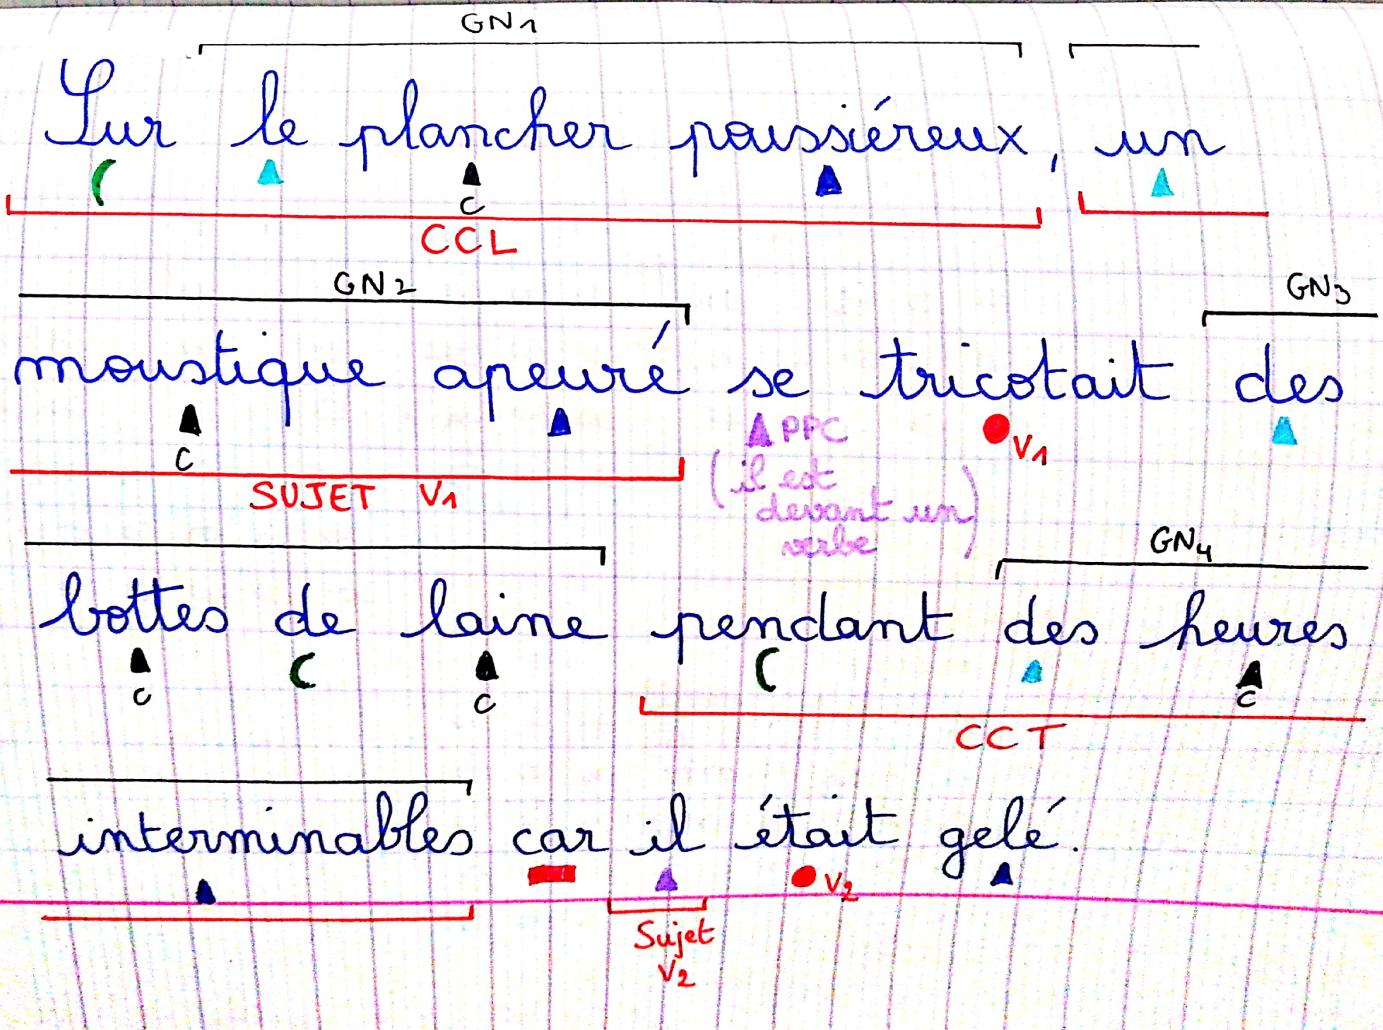 GN1
Sur le plancher poussiéreux, un
C
CCL
GN2
GN3
moustique apeuré se tricotait des
C
PPC
V1
SUJET V1
(il est
devant un
verbe)
GN4
bottes de laine pendant des heures
C C C
CCT
interminables car il était gelé.
V2
Sujet
V2